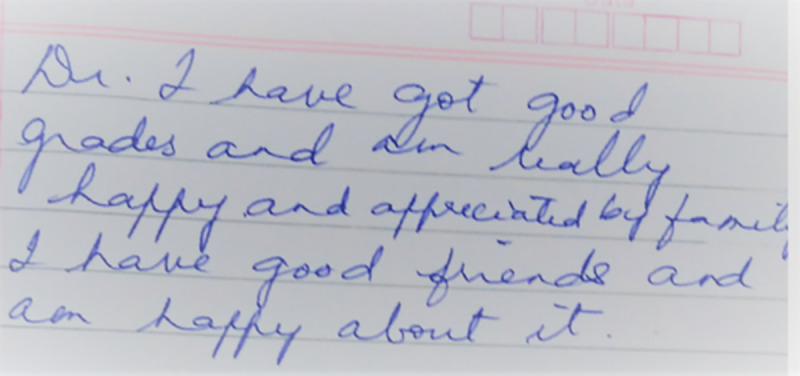 Dr. I have got good
grades and am really
happy and appreciated by family
I have good friends and
am happy about it.